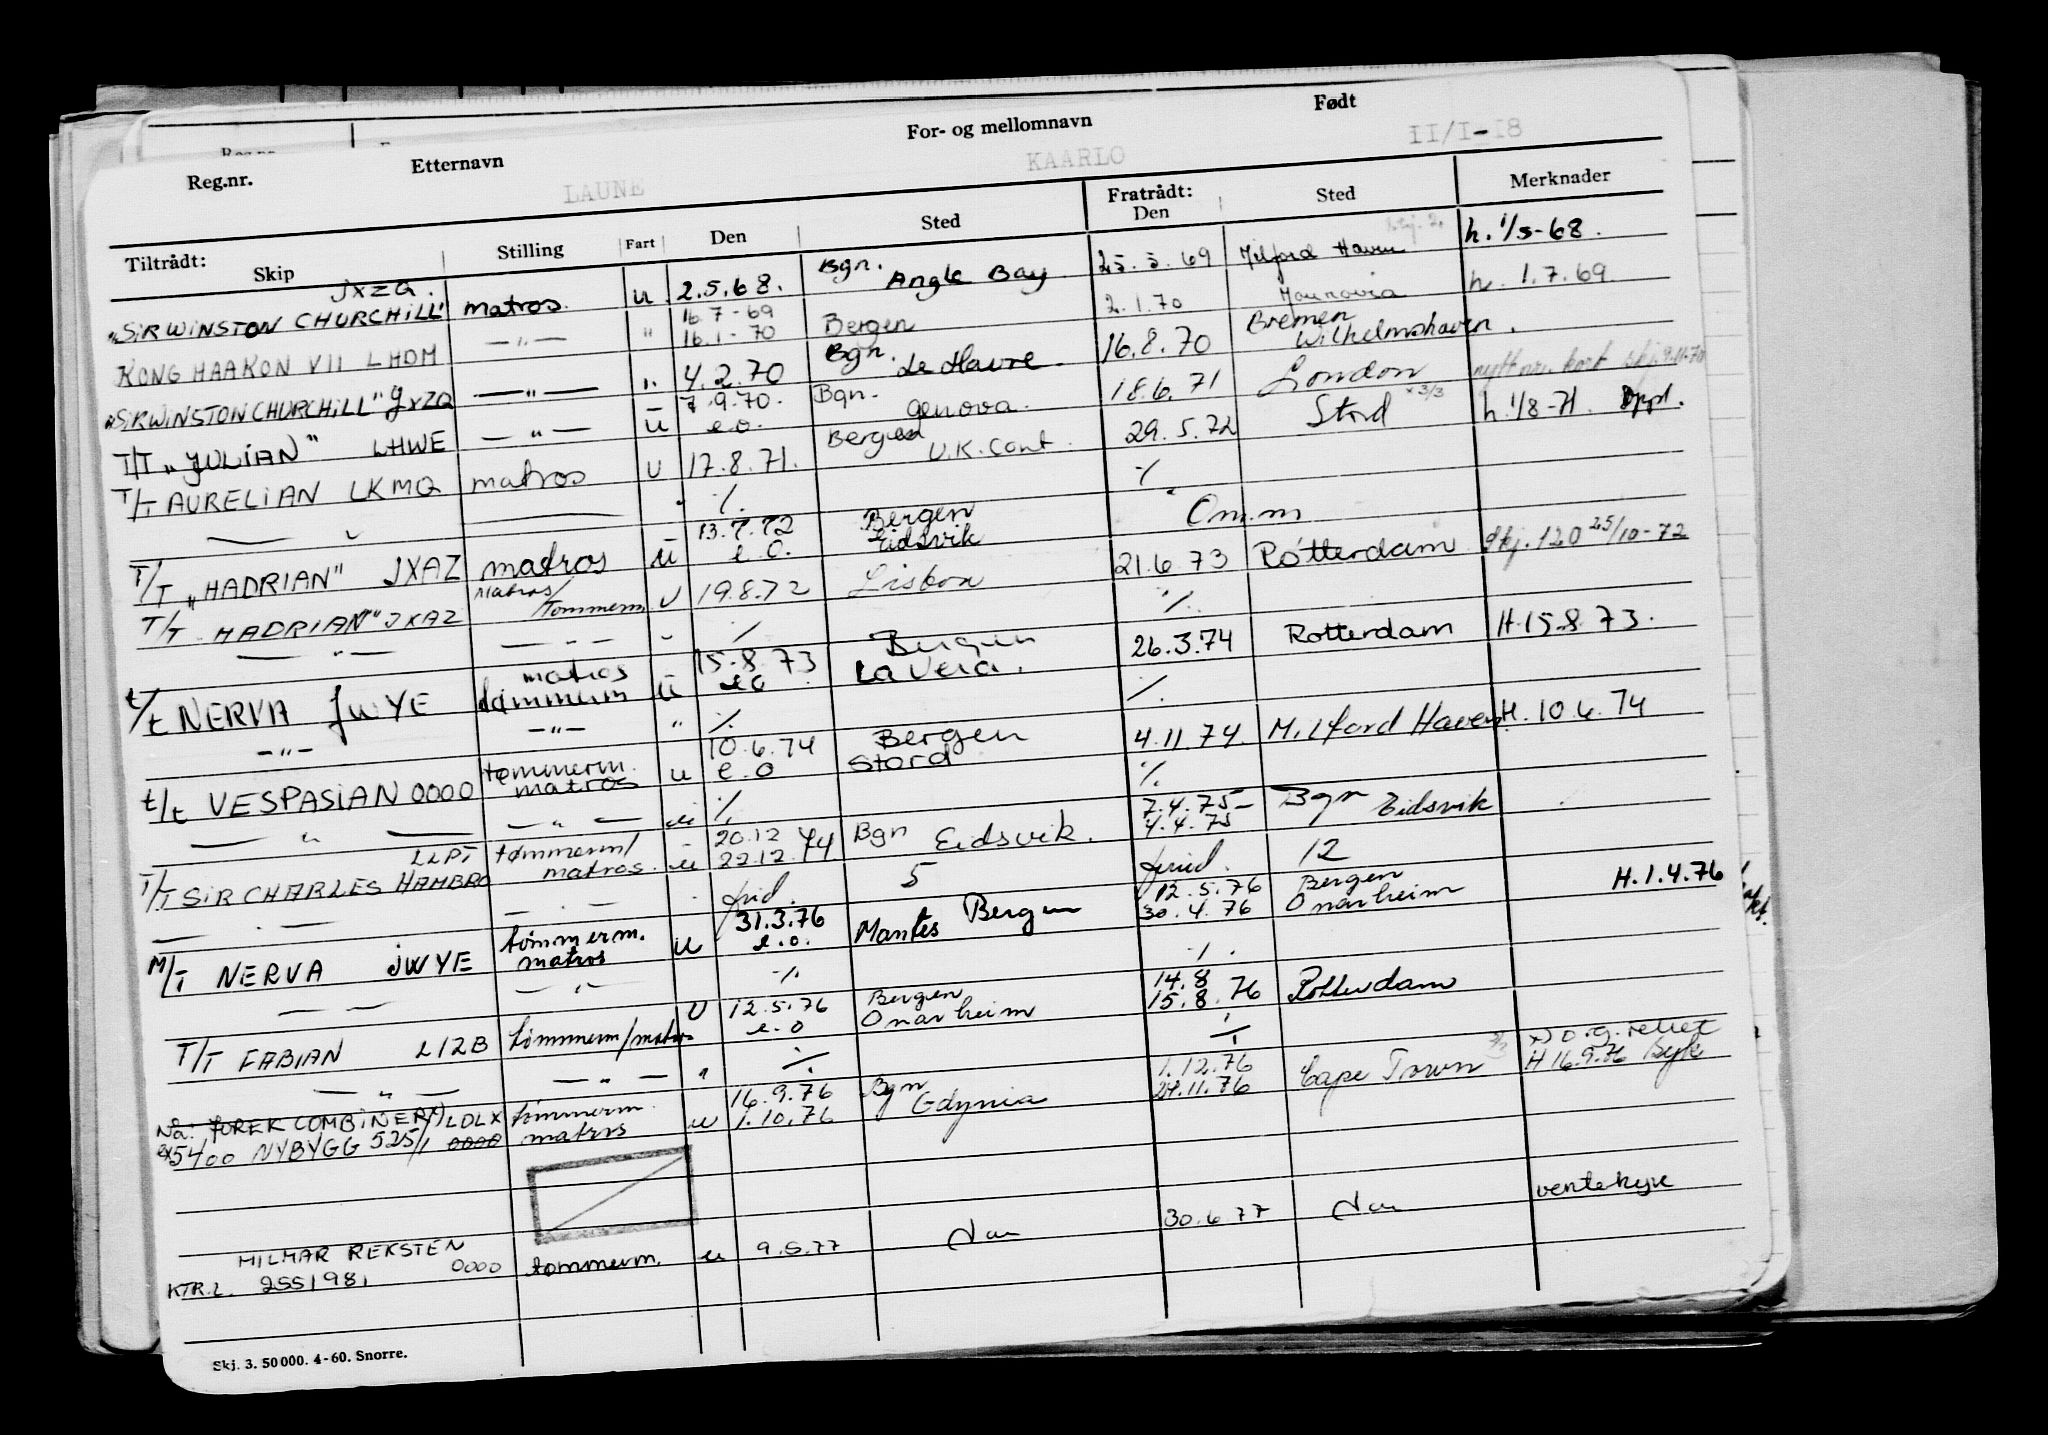 Reg.nr. Etternavn For- og mellomnavn Født
LAUNE KAARLO II/I-I8
Tiltrådt: Fratrådt:
Skip Stilling Fart Den Sted Den Sted Merknader
JXZQ. Bgn.
"SIR WINSTON CHURCHILL" matros. u 2.5.68. Angle Bay 25.5.69 Milford Haven h. 1/5-68.
16.7-69
KONG HAAKON VII LHDM —"— " 16.1-70 Bergen 2.1.70 h. 1.7.69.
Bgn. Bremen
"SIR WINSTON CHURCHILL" JXZQ —"— ". 4.2.70 Le Havre. 16.8.70 Wilhelmshaven.
7.9.70. Bgn.
T/T "JULIAN" LHWE —"— u e.o. Genova. 18.6.71 London
Bergen
T/T AURELIAN LKMQ matros u 17.8.71. U.K. Cont. 29.5.72 Stord h. 1/8-71.
— " — % %
13.7.72 Bergen
T/T "HADRIAN" JXAZ matros u e.o. Eidsvik Om.m
matros/
T/T HADRIAN" JXAZ Tømmerm u 19.8.72 Lisbon 21.6.73 Rotterdam Skj. 120 25/10-72
— " — — " — % %
matros 15.8.73 Bergen
t/t NERVA JWYE tømmerm u eo LaVera. 26.3.74 Rotterdam H.15.8.73.
—"— —"— " % %
tømmerm. 10.6.74 Bergen
t/t VESPASIAN 0000 matros u e.o Stord 4.11.74. Milford Haven H. 10.6.74
— " — — " — % %
LLPT tømmerm/ 20.12 Bgn 7.4.75- Bgn
T/T SIR CHARLES HAMBRO matros. u 22.12.74 Eidsvik. 4.4.75 Eidsvik
5 12
tømmerm. 31.3.76 Bergen 12.5.76 Bergen
M/T NERVA JWYE matros u e.o. Mantes 30.4.76 Onarheim H.1.4.76
— — — " — % %
12.5.76 Bergen 14.8
T/T FABIAN LIZB tømmerm/matros U e.o Onarheim 15.8.76 Rotterdam
— " — — " — " % %
Nå: YOREK COMBINER x) LDLX tømmerm. 16.9.76 Bgn 1.12.76 x) O.g. reliet
ex 5400 NYBYGG 525/1 0000 matros u 1.10.76 Gdynia 24.11.76 Cape Town H 16.9.76
HILMAR REKSTEN
KTR.L. 2551981 0000 tømmerm. u 9.5.77 30.6.77 ventehyre
Skj. 3. 50 000. 4-60. Snorre.